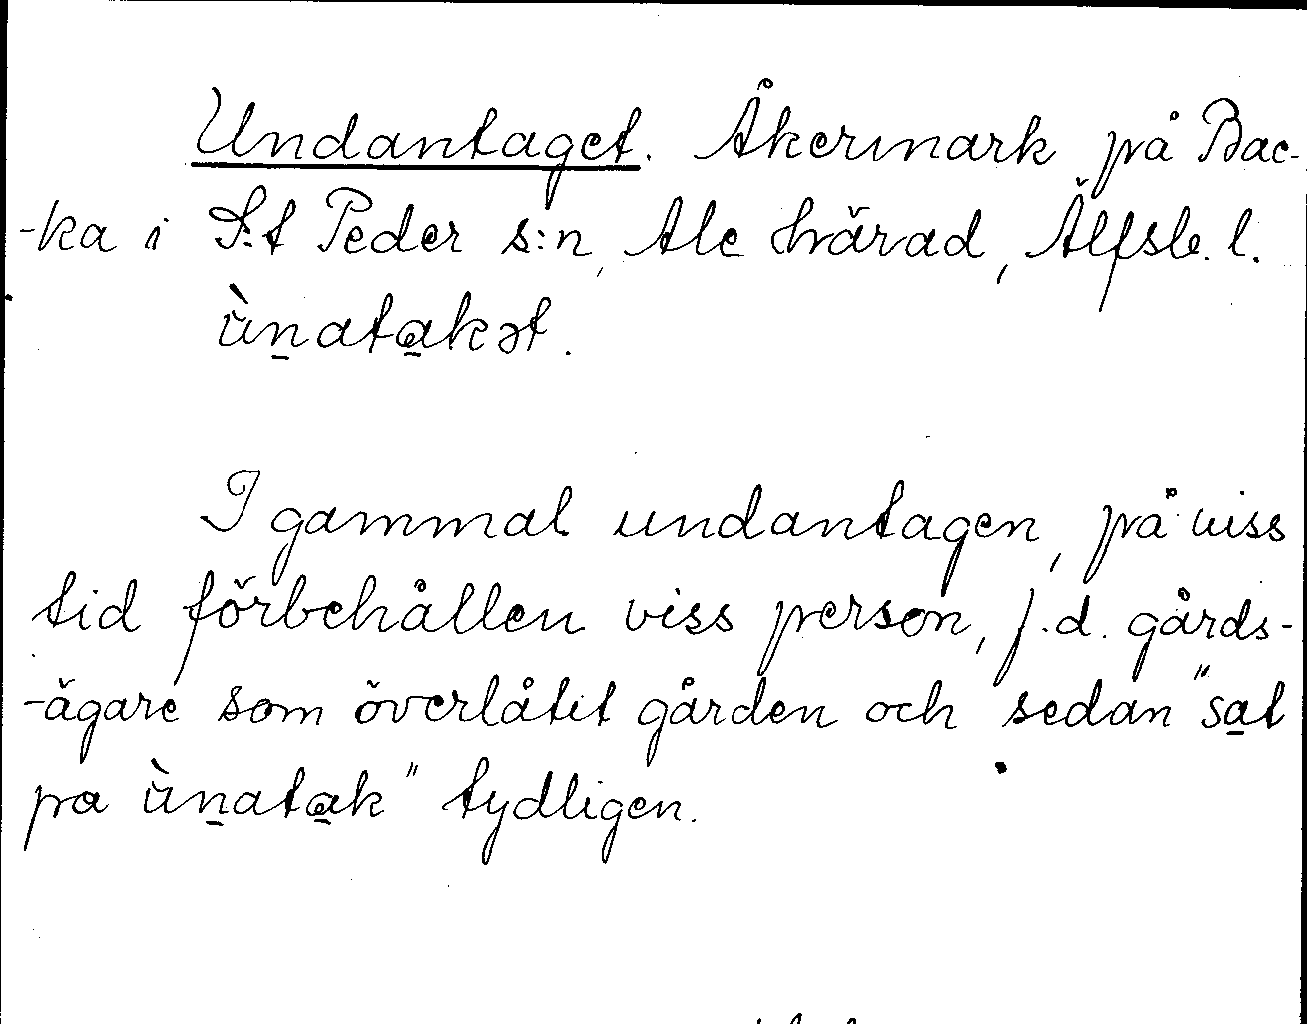 Undantaget. Åkermark på Bac-
-ka i S:t Peder s:n, Ale härad, Älfsb. l.
ùn̲ata̲kət.
I gammal undantagen, på viss
tid förbehållen viss person, f.d. gårds-
-ägare som överlåtit gården och sedan "sa̲t
pa ùn̲ata̲k" tydligen.